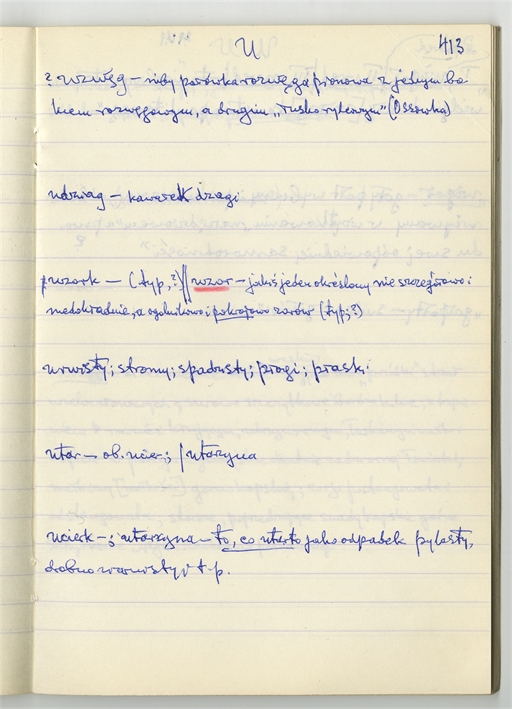 U 413
? uzwęg – niby połówka rozwęga pionowa z jednym bo-
kiem rozwęgowym, a drugim „rusko rylcowym” (Ossówka)
udziag – kawałek dziagi
uwzork – (typ, ?) || uzor – jakiś jeden określony nie szczegółowo i
niedokładnie, a ogólnikowo i pokrojowo zarów (typ; ?)
urwisty; stromy; spadzisty; progi; praski
utar – ob. ucier; / utarzyna
ucierk –; utarzyna – to, co utarto jako odpadek pylasty,
drobno ziarnisty i t.p.